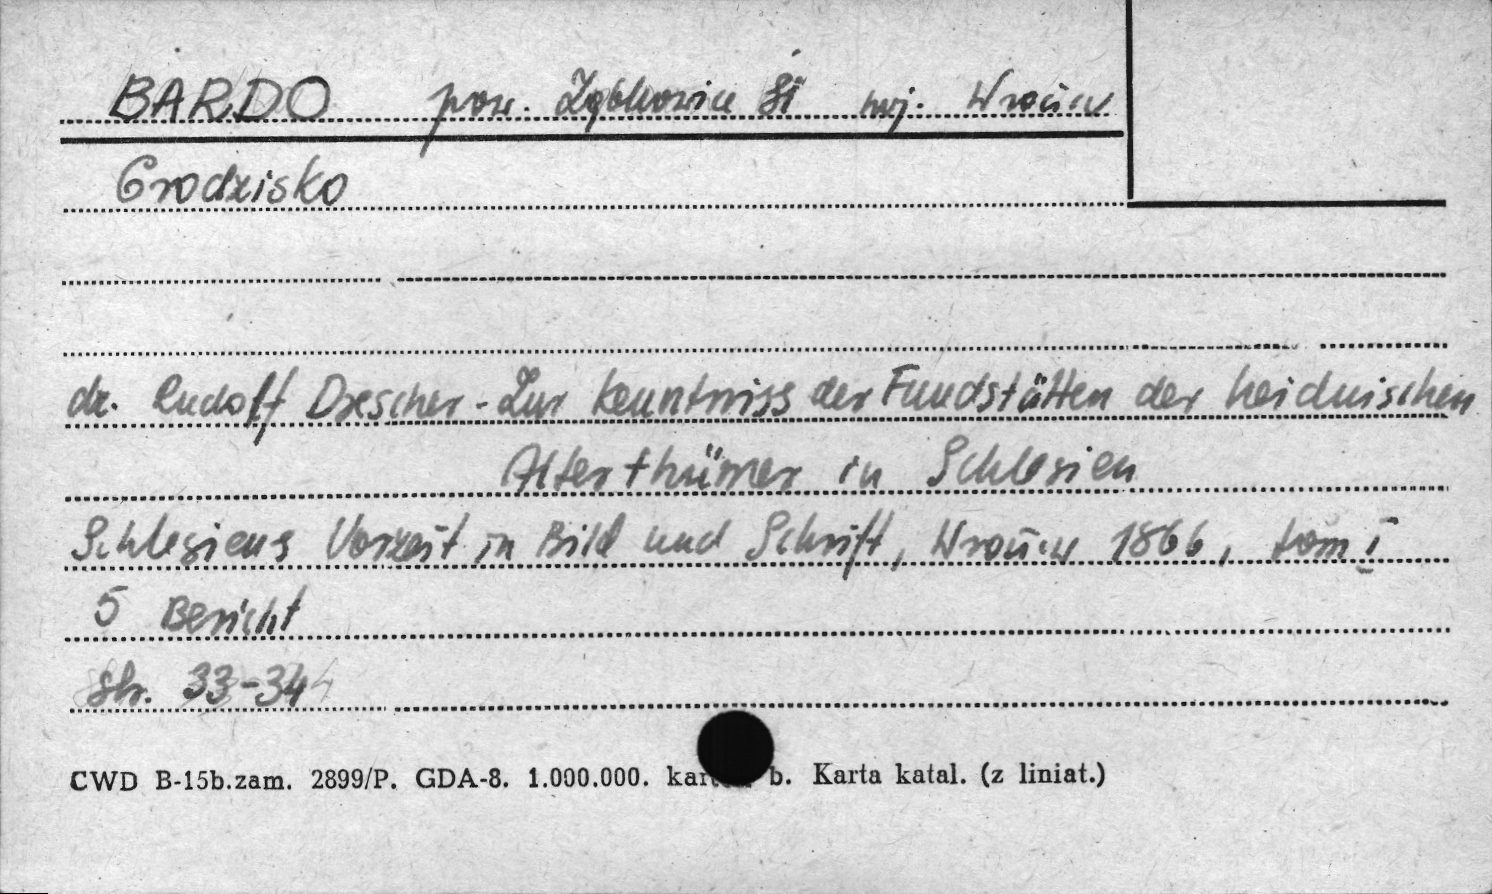 BARDO pow. Ząbkowice Śl woj. Wrocław
Grodzisko
dr. Rudolf Drescher - Zur Kenntniss der Fundstätten der heidnischen
Alterthümer in Schlesien
Schlesiens Vorzeit in Bild und Schrift, Wrocław 1866, tom I
5 Bericht
str. 33-34
CWD B-15b.zam. 2899/P. GDA-8. 1.000.000. b. Karta katal. (z liniat.)